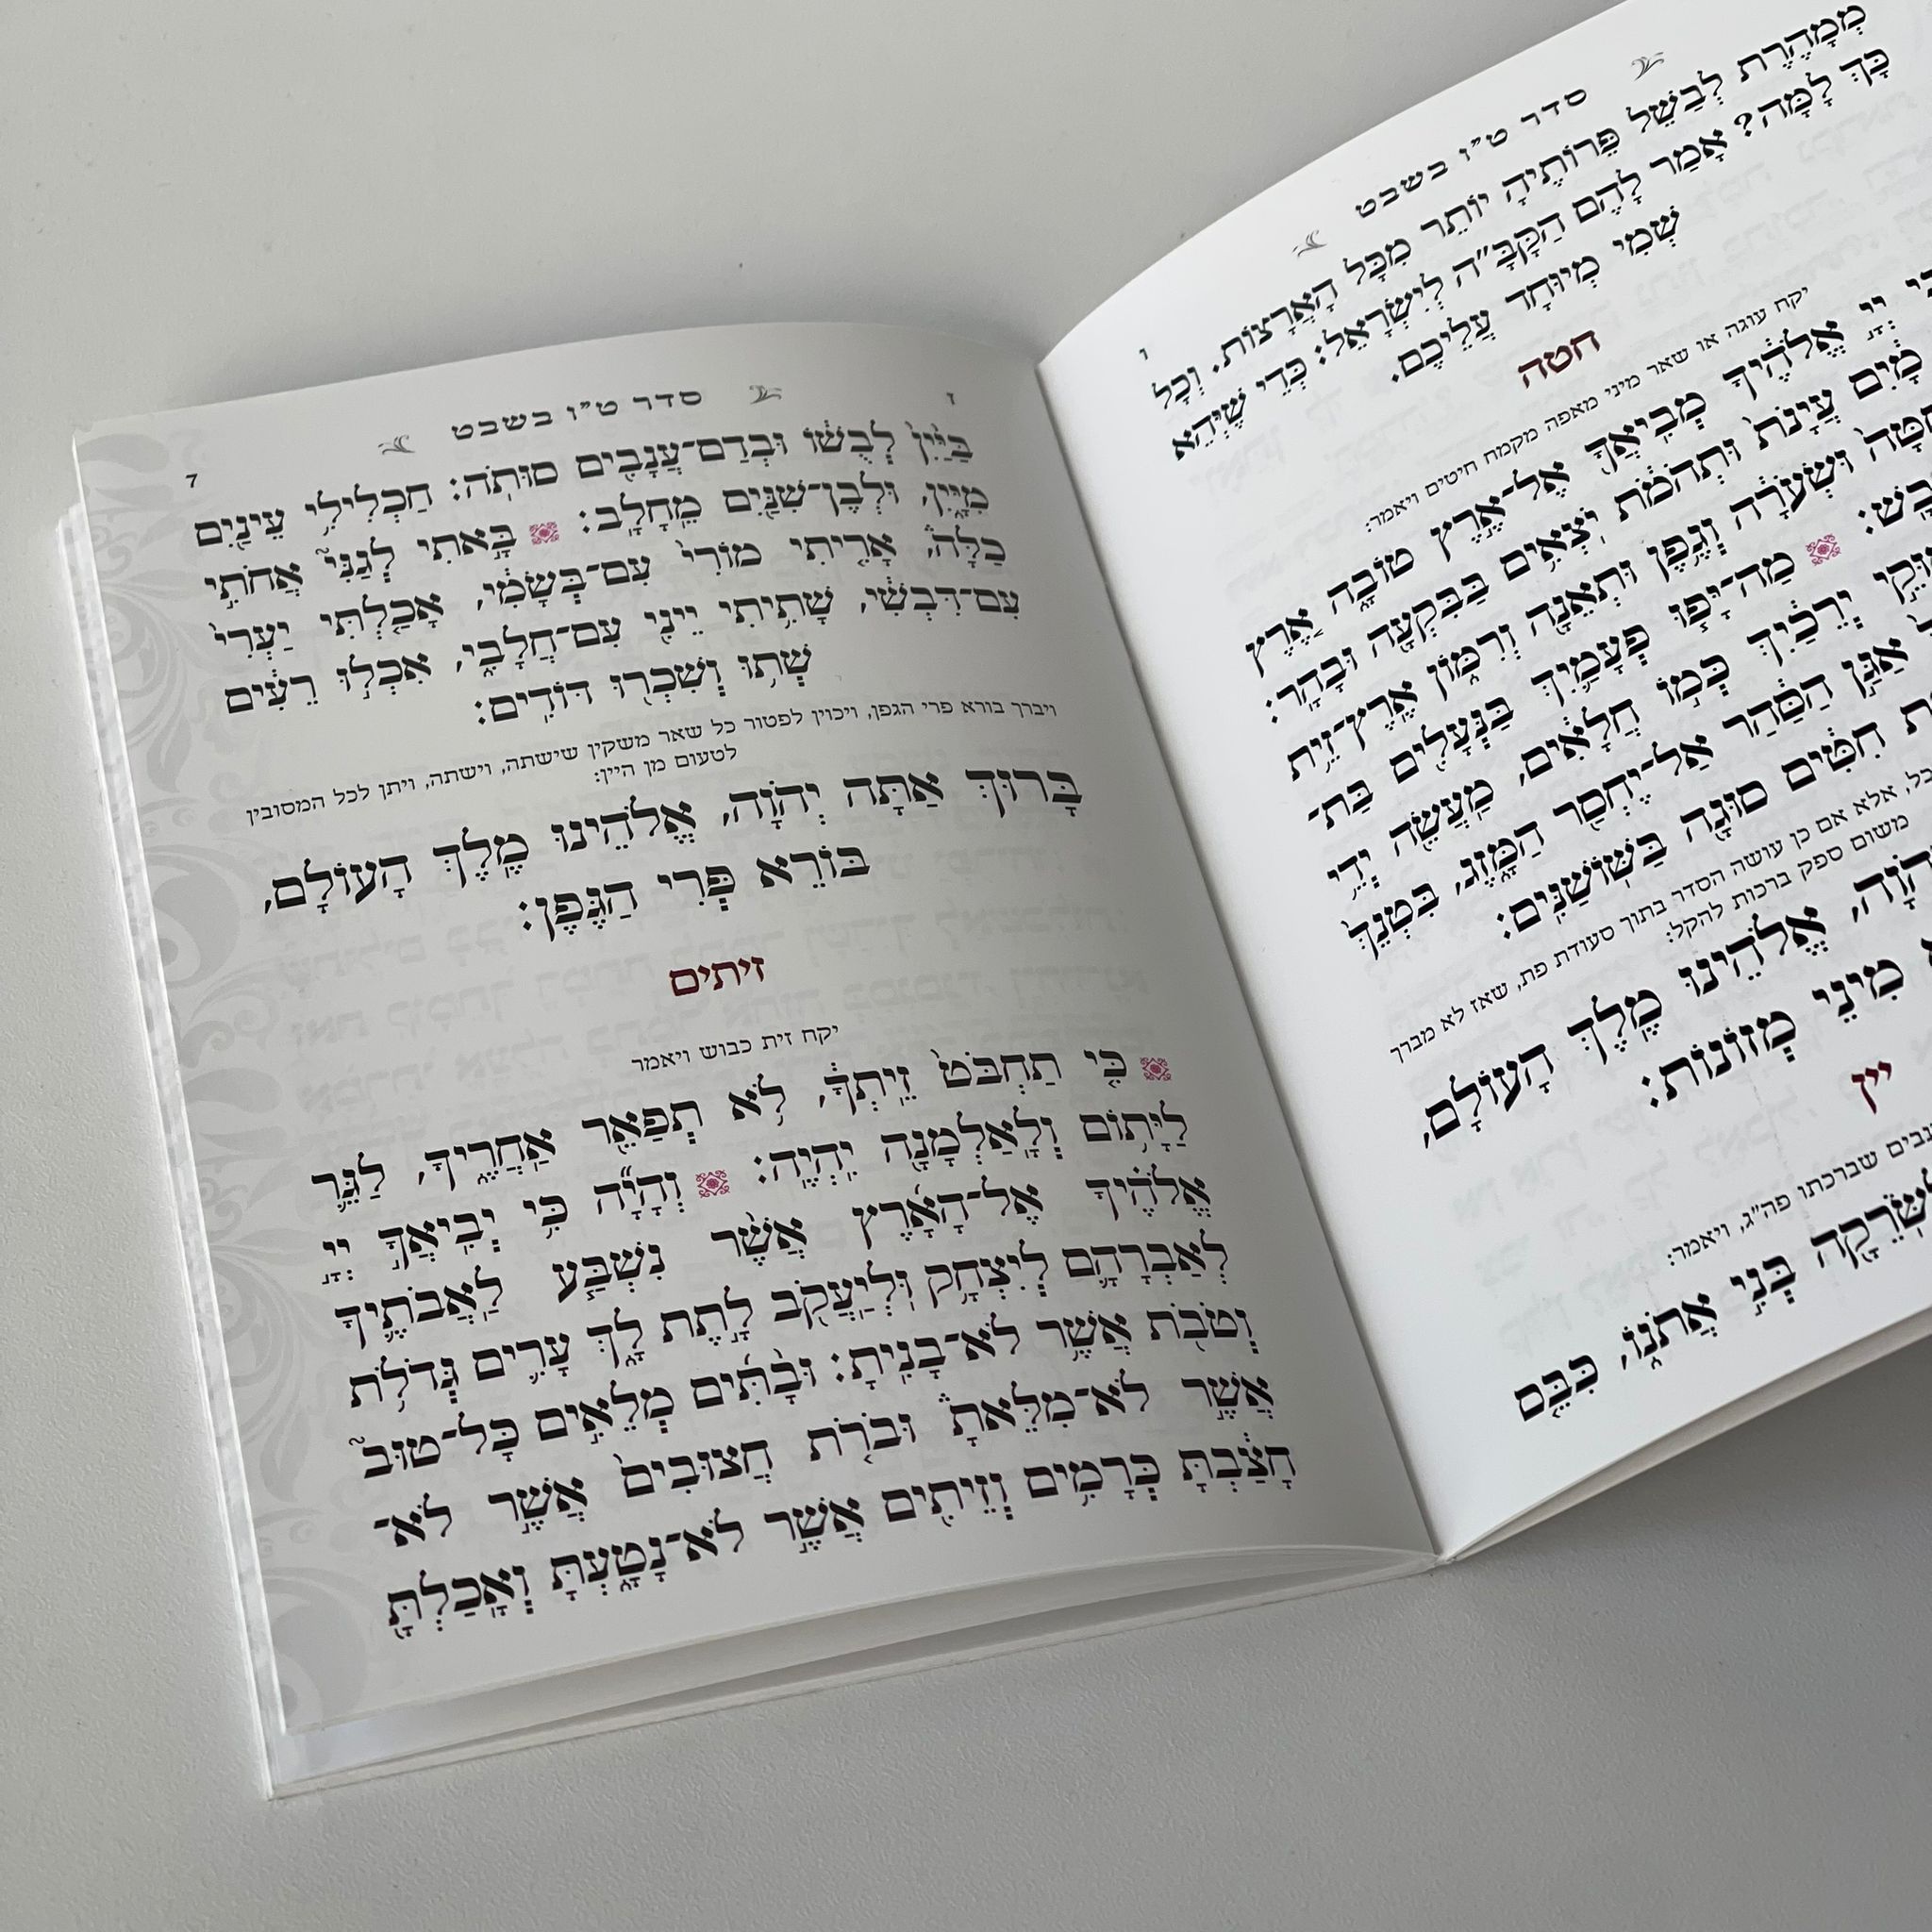 סדר ט״ו בשבט
ו
מְמַהֶרֶת לְבַשֵּׁל פֵּרוֹתֶיהָ יוֹתֵר מִכָּל הָאֲרָצוֹת. וְכָל
כָּךְ לָמָּה? אָמַר לָהֶם הַקָּבָּ״ה לְיִשְׂרָאֵל: כְּדֵי שֶׁיְּהֵא
שְׁמִי מְיוּחָד עֲלֵיכֶם.
חטה
יקח עוגה או שאר מיני מאפה מקמח חיטים ויאמר:
יְיָ֣ אֱלֹהֶ֔יךָ מְבִֽיאֲךָ֖ אֶל־אֶ֣רֶץ טוֹבָ֑ה אֶ֚רֶץ
מָ֔יִם עֲיָנֹת֙ וּתְהֹמֹ֔ת יֹֽצְאִ֥ים בַּבִּקְעָ֖ה וּבָהָֽר:
וּשְׂעֹרָ֔ה וְגֶ֥פֶן וּתְאֵנָ֖ה וְרִמּ֑וֹן אֶֽרֶץ־זֵ֥ית
מַה־יָּפ֧וּ פְעָמַ֛יִךְ בַּנְּעָלִ֖ים בַּת־
יְרֵכַ֔יִךְ כְּמ֣וֹ חֲלָאִ֔ים, מַֽעֲשֵׂ֖ה יְדֵ֥י
אַגַּ֣ן הַסַּ֔הַר אַל־יֶחְסַ֖ר הַמָּ֑זֶג, בִּטְנֵךְ֙
חִטִּ֔ים סוּגָ֖ה בַּשּֽׁוֹשַׁנִּֽים:
אלא אם כן עושה הסדר בתוך סעודת פת, שאז לא מברך
משום ספק ברכות להקל:
אֱלֹהֵינוּ מֶלֶךְ הָעוֹלָם,
מִינֵי מְזוֹנוֹת:
יין
שברכתו פה״ג, ויאמר:
בְּנִ֣י אֲתֹנ֑וֹ, כִּבֵּ֤ס
ז
סדר ט״ו בשבט
7
בַּיַּ֨יִן֙ לְבֻשׁ֔וֹ וּבְדַם־עֲנָבִ֖ים סוּתֹֽה: חַכְלִילִ֥י עֵינַ֖יִם
מִיָּ֑יִן, וּלְבֶן־שִׁנַּ֖יִם מֵֽחָלָֽב: בָּ֣אתִי לְגַנִּי֮ אֲחֹתִ֣י
כַלָּה֒, אָרִ֤יתִי מוֹרִי֙ עִם־בְּשָׂמִ֔י, אָכַ֤לְתִּי יַעְרִי֙
עִם־דִּבְשִׁ֔י, שָׁתִ֥יתִי יֵינִ֖י עִם־חֲלָבִ֑י, אִכְל֣וּ רֵעִ֔ים
שְׁת֥וּ וְשִׁכְר֖וּ דּוֹדִֽים:
ויברך בורא פרי הגפן, ויכוין לפטור כל שאר משקין שישתה, וישתה, ויתן לכל המסובין
לטעום מן היין:
בָּרוּךְ אַתָּה יְהֹוָה, אֱלֹהֵינוּ מֶלֶךְ הָעוֹלָם,
בּוֹרֵא פְּרִי הַגֶּפֶן:
זיתים
יקח זית כבוש ויאמר
כִּ֤י תַחְבֹּט֙ זֵֽיתְךָ֔, לֹ֥א תְפַאֵ֖ר אַחֲרֶ֑יךָ, לַגֵּ֛ר
לַיָּת֥וֹם וְלָאַלְמָנָ֖ה יִֽהְיֶֽה: וְהָיָ֞ה כִּ֥י יְבִיאֲךָ֣ יְיָ֣
אֱלֹהֶ֗יךָ אֶל־הָאָ֜רֶץ אֲשֶׁ֨ר נִשְׁבַּ֧ע לַאֲבֹתֶ֛יךָ
לְאַבְרָהָ֛ם לְיִצְחָ֥ק וּֽלְיַעֲקֹ֖ב לָ֣תֶת לָ֑ךְ עָרִ֛ים גְּדֹלֹ֥ת
וְטֹבֹ֖ת אֲשֶׁ֥ר לֹא־בָנִֽיתָ: וּבָ֨תִּ֜ים מְלֵאִ֣ים כָּל־טוּב֮
אֲשֶׁ֣ר לֹא־מִלֵּאתָ֒ וּבֹרֹ֤ת חֲצוּבִים֙ אֲשֶׁ֣ר לֹא־
חָצַ֔בְתָּ כְּרָמִ֥ים וְזֵיתִ֖ים אֲשֶׁ֣ר לֹא־נָטָ֑עְתָּ וְאָכַלְתָּ֖